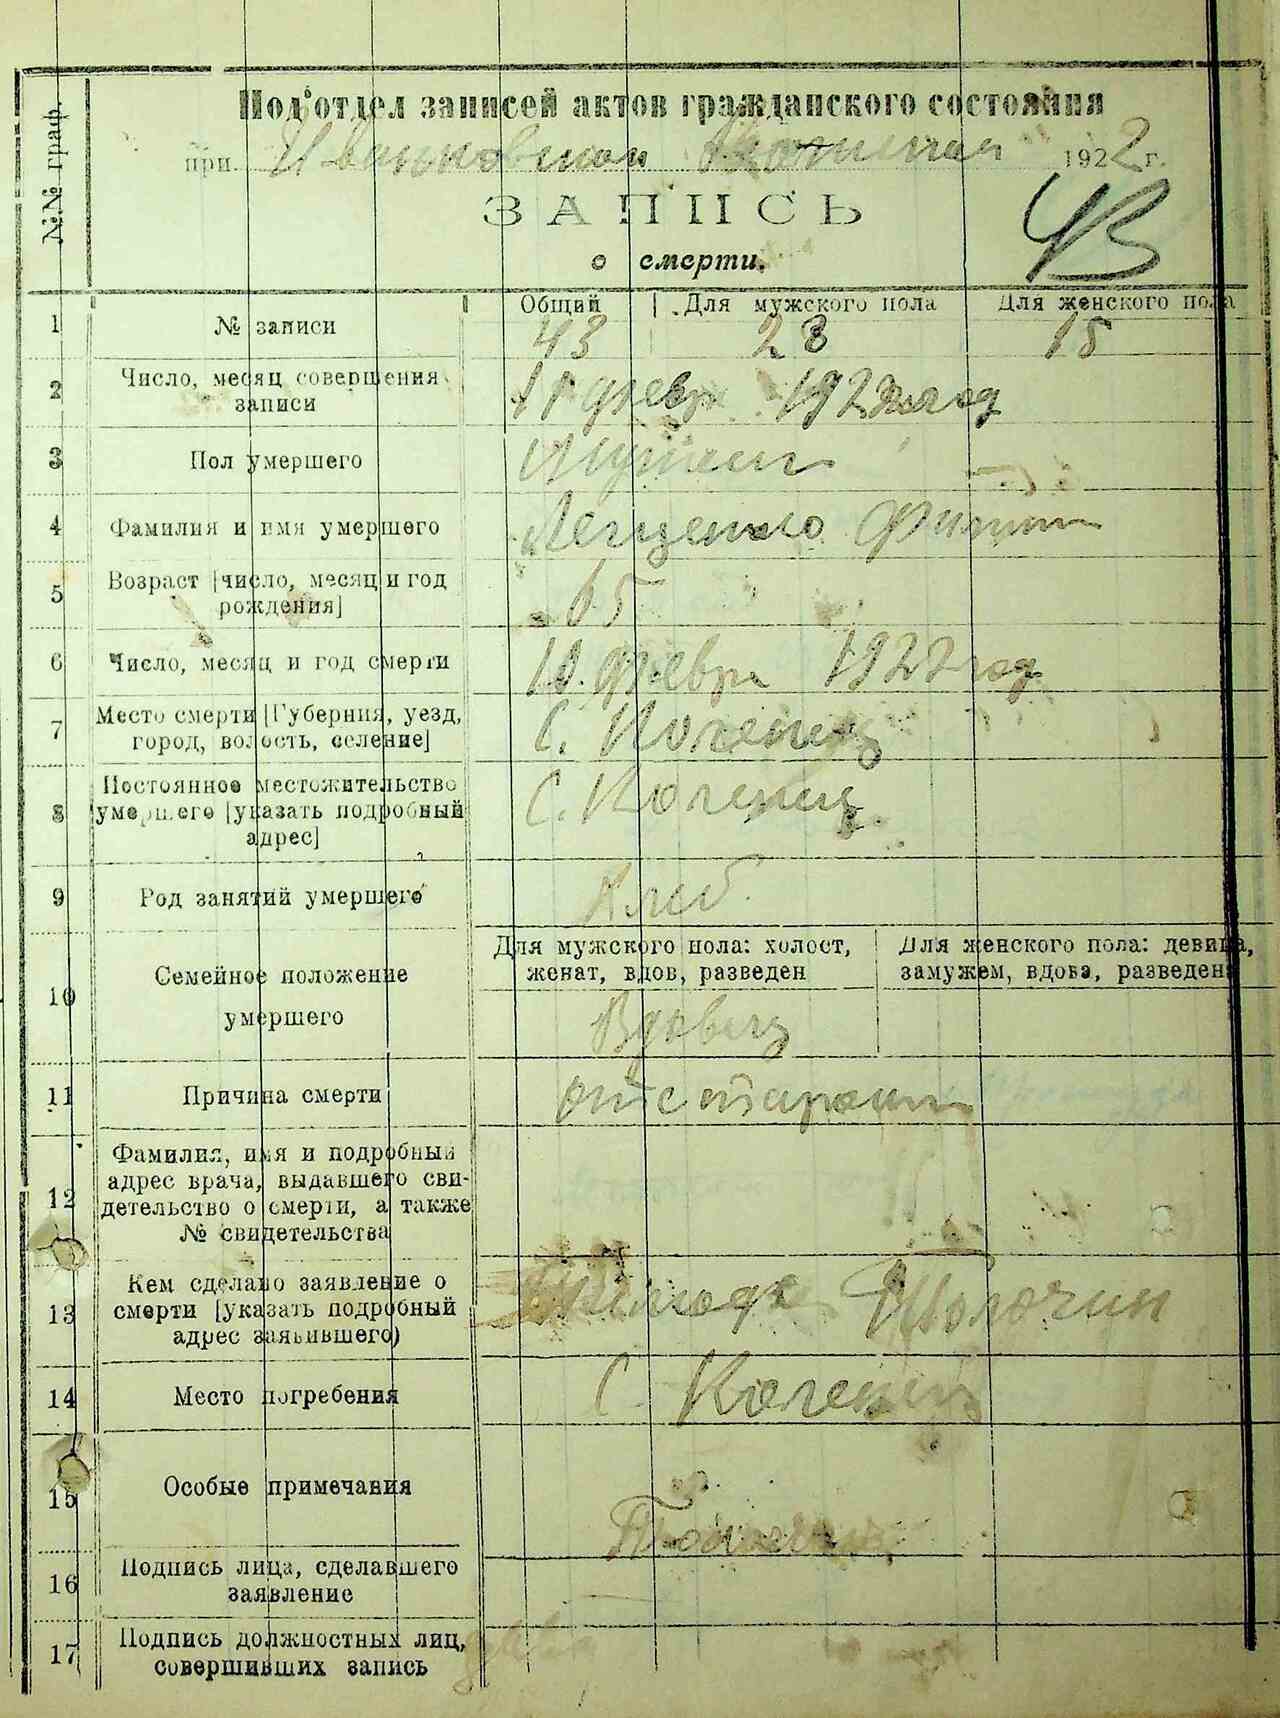 Под'отдел записей актов гражданского состояния
при 1922 г.
ЗАПИСЬ
о смерти.
43
№№ граф.
Общий Для мужского пола Для женского пола
1 № записи 43 28 15
2 Число, месяц совершения записи 11 февр 1922 год
3 Пол умершего
4 Фамилия и имя умершего Лещенко
5 Возраст [число, месяц и год рождения] 65
6 Число, месяц и год смерти 10 февр 1922 год
7 Место смерти [Губерния, уезд, город, волость, селение] С.
8 Постоянное местожительство умершего [указать подробный адрес] С.
9 Род занятий умершего Хлеб.
10 Семейное положение умершего
Для мужского пола: холост, женат, вдов, разведен
Для женского пола: девица, замужем, вдова, разведена
Вдовец
11 Причина смерти от старости
12 Фамилия, имя и подробный адрес врача, выдавшего свидетельство о смерти, а также № свидетельства
13 Кем сделано заявление о смерти [указать подробный адрес заявившего)
14 Место погребения С.
15 Особые примечания
16 Подпись лица, сделавшего заявление
17 Подпись должностных лиц, совершивших запись